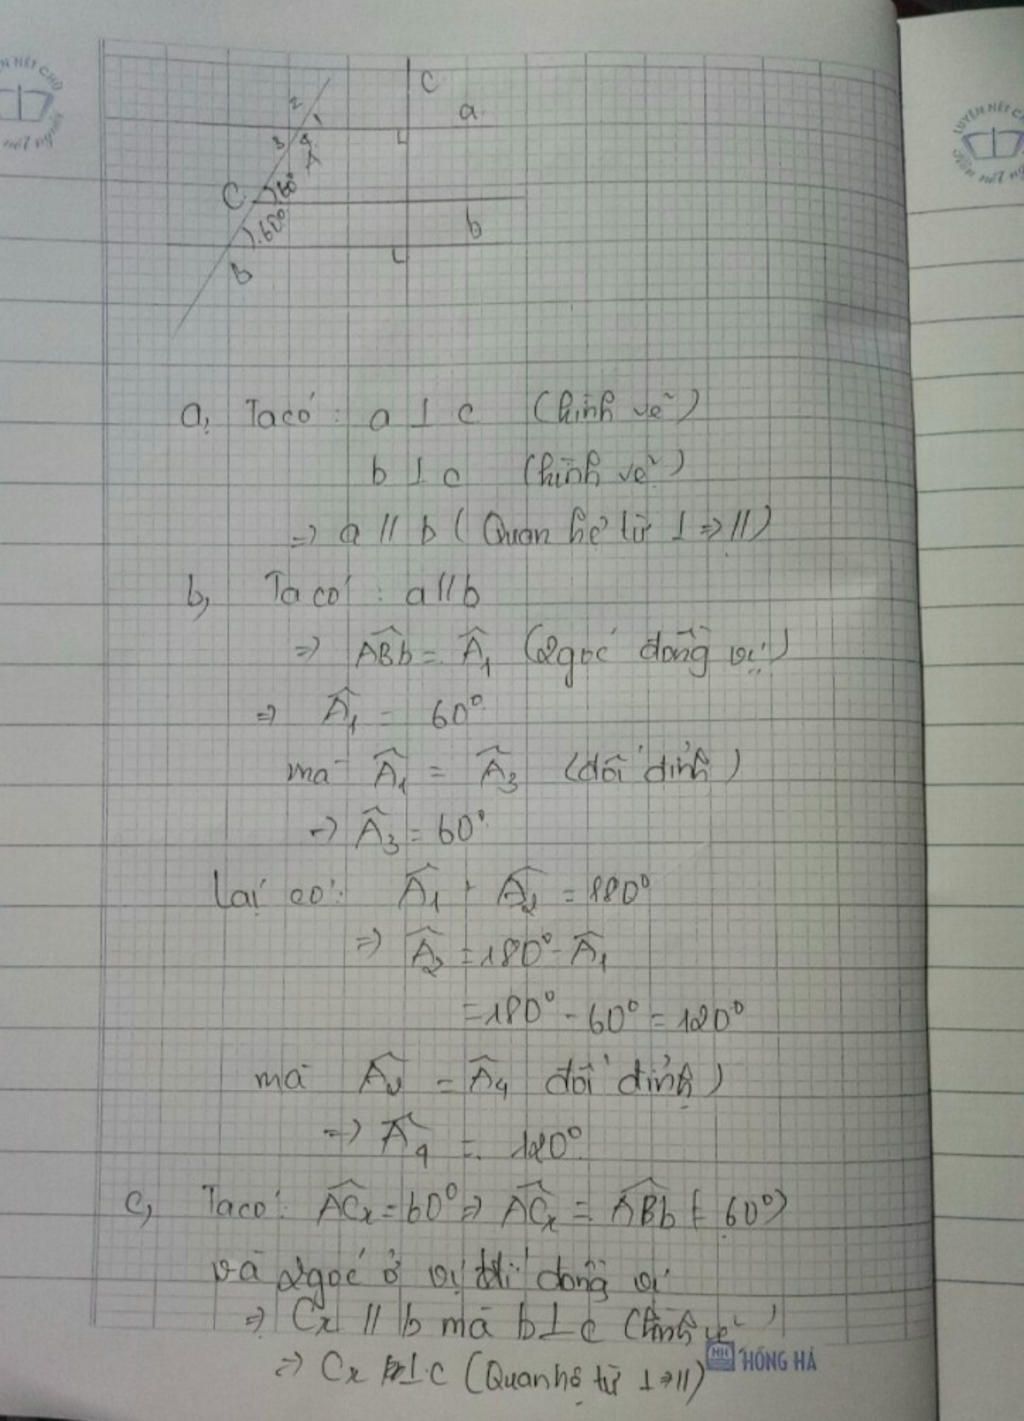 C
a
2
1
3
4
A
C
60°
60°
b
B
a, Ta có: a ⊥ c (hình vẽ)
b ⊥ c (hình vẽ)
=> a // b (Quan hệ từ ⊥ => //)
b, Ta có: a//b
=> ABb = A1 (2 góc đồng vị)
=> A1 = 60°
mà A1 = A3 (đối đỉnh)
=> A3 = 60°
Lại có: A1 + A2 = 180°
=> A2 = 180° - A1
= 180° - 60° = 120°
mà A2 = A4 đối đỉnh)
=> A4 = 120°
c, Ta có: ACx = 60° => ACx = ABb (= 60°)
và 2 góc ở vị trí đồng vị
=> Cx // b mà b ⊥ c (hình vẽ)
=> Cx ⊥ c (Quan hệ từ ⊥ => //)
HỒNG HÀ
LUYỆN NÉT CH